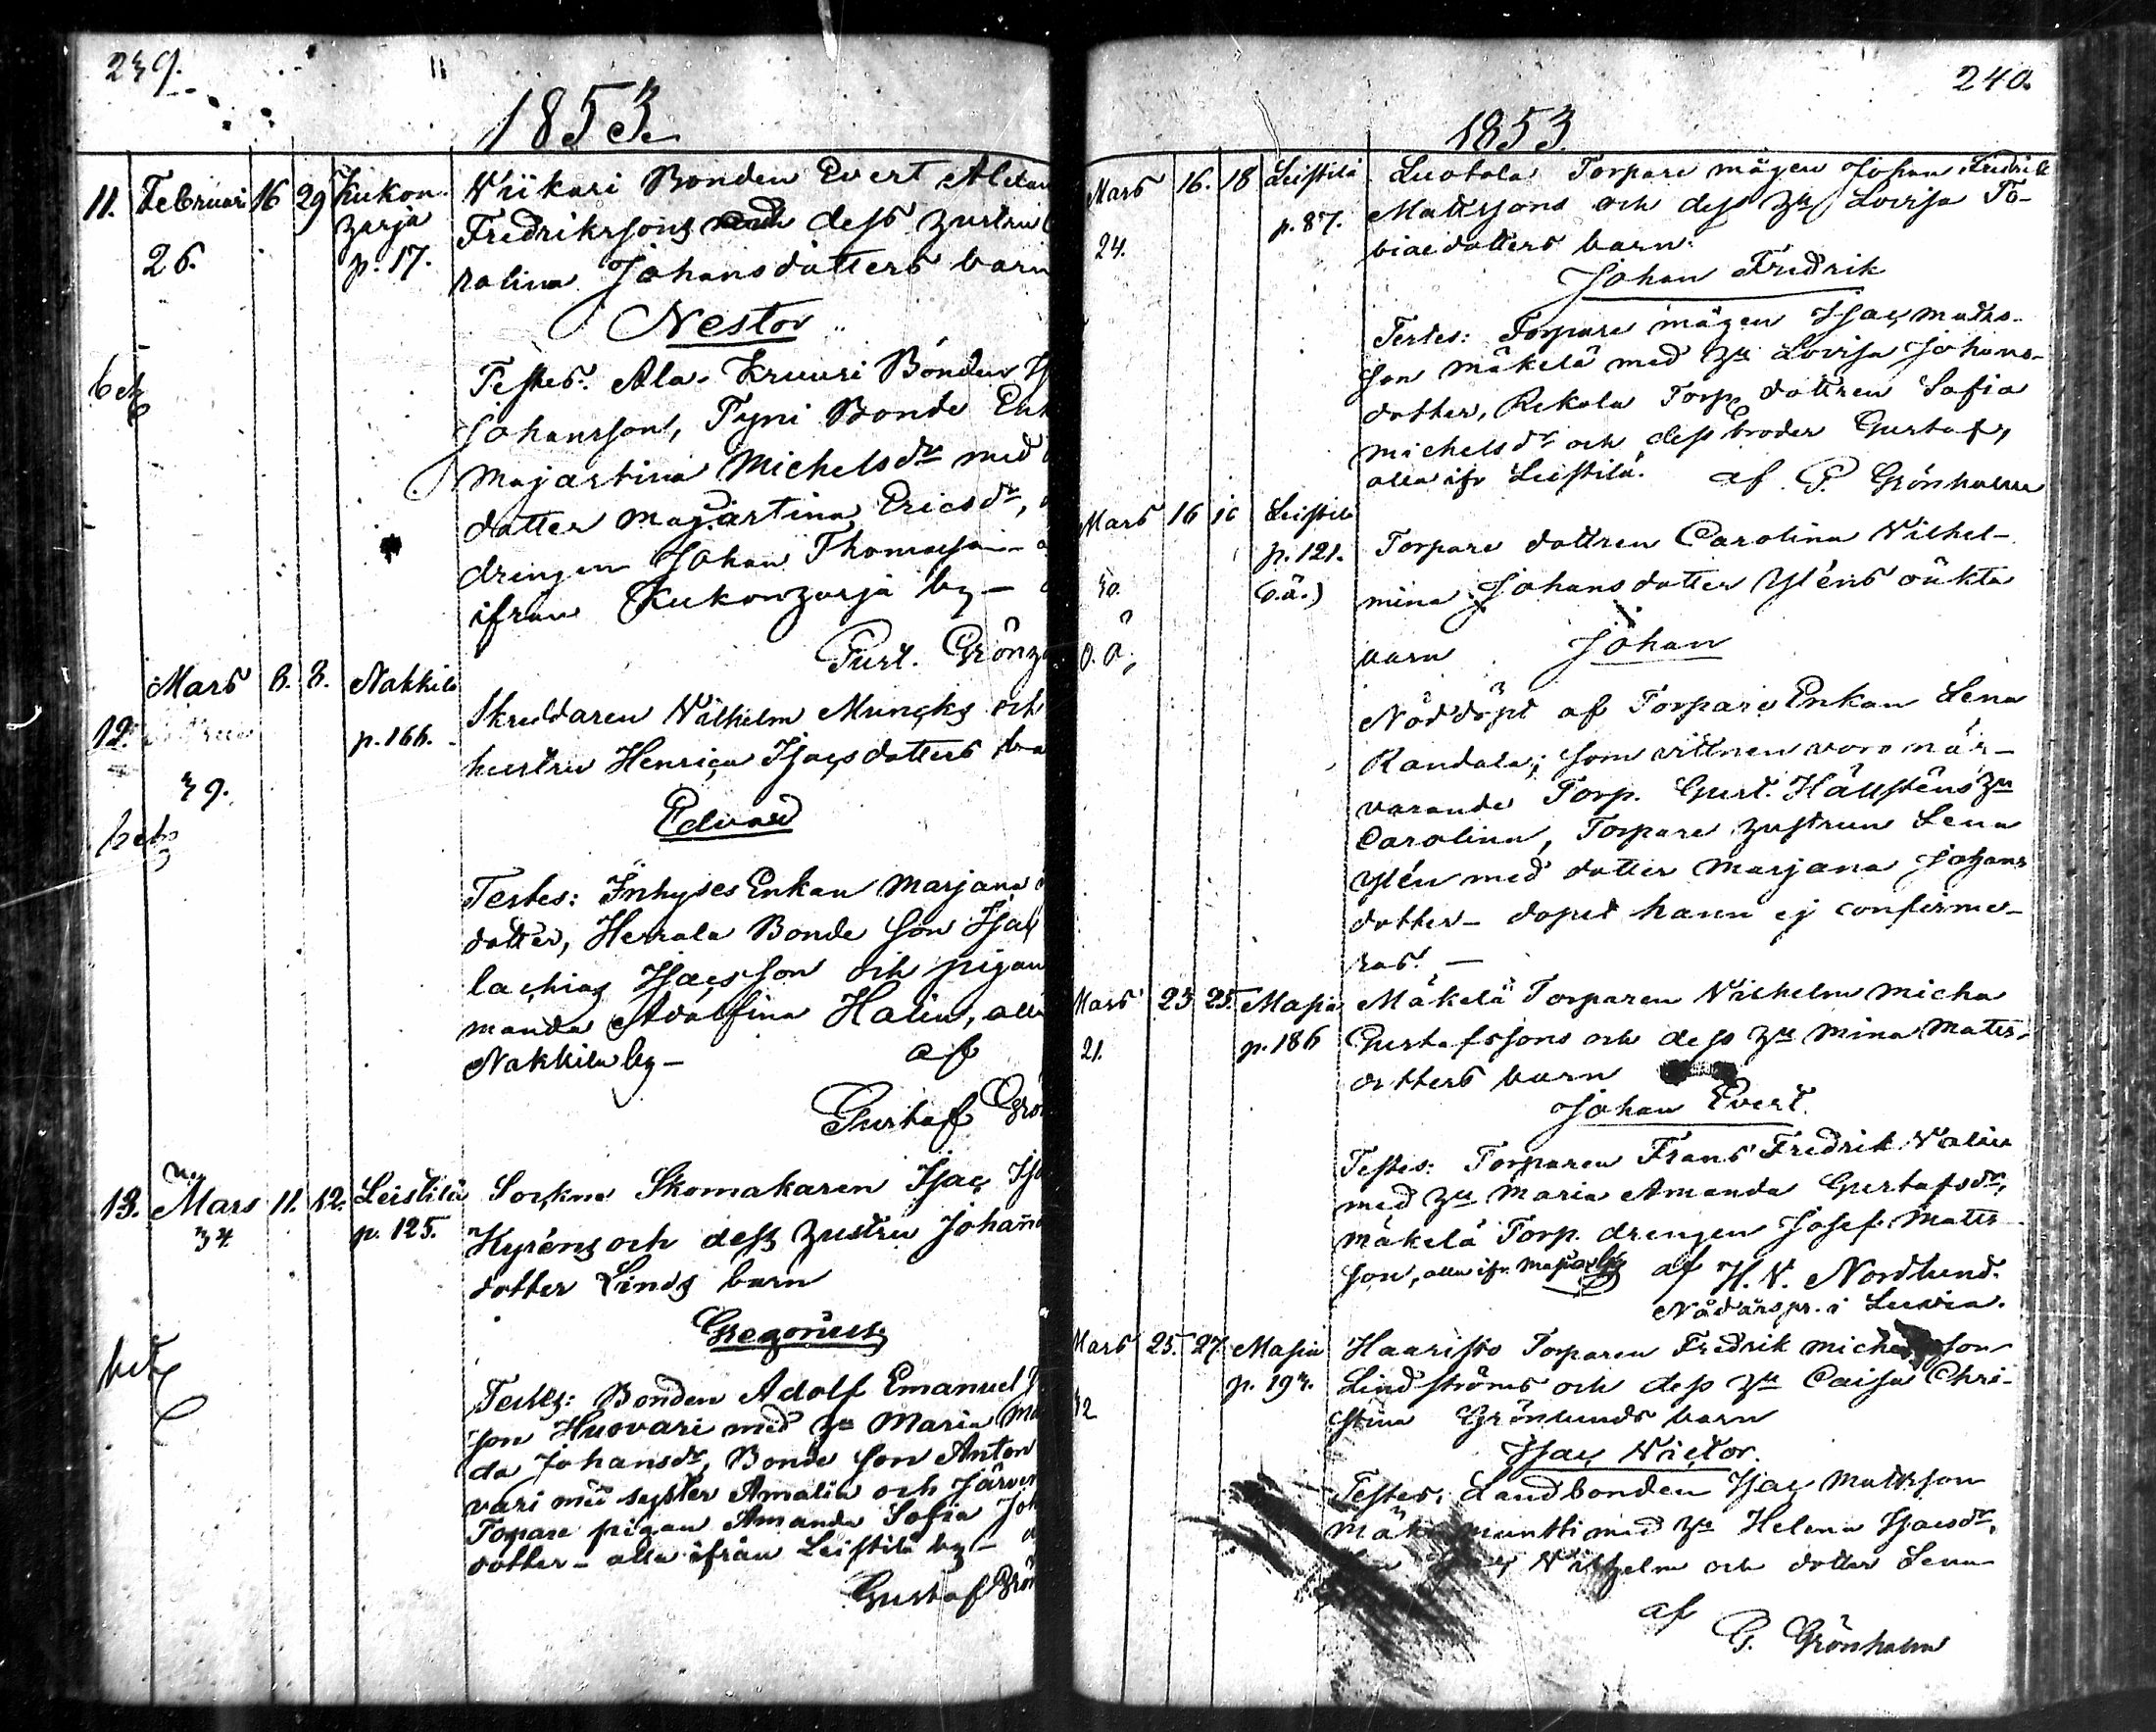 239.
1853.
11. Februari 16 29 Kukon-
zarja
26.
p. 17.
Wiikari Bonden Evert Alexan
Fredrikssons och dess hustru
rolina Johansdotters barn
Nestor
bet
Testes: Ala-Kruuri Bonden
Johansson, Tyni Bonde Enk
Majastina Michelsdr med
dotter Majastina Ericsdr,
drengen Johan Thomasson
ifrån Kukonzarja by -
Gust. Grönh
12. Mars 8. 8. Nakkila
p. 166.
39.
bet
Skreddaren Wilhelm Muncks och
hustru Henrica Isacsdotters ba
Edvard
Testes: Inhyses Enkan Marjana
dotter, Herrala Bonde Son Isac
lachias Isacsson och pigan
manda Adolfina Halin, alla
Nakkila by - af
Gustaf Grön
13. Mars 11. 12. Leistilä
34.
p. 125.
Sockne Skomakaren Isac Isa
Kyréns och dess hustru Johann
dotter Linds barn
Gregorius
bet
Testes: Bonden Adolf Emanuel
son Huovari med hu Maria Ma
da Johansdr, Bonde Son Anton
vari med syster Amalia och Järven
Topare pigan Amanda Sofia Joh
dotter - alla ifrån Leistilä by -
Gustaf Grön
240.
1853.
Mars 16. 18 Leistilä
p. 87.
24.
Luotola Torpare mågen Johan Fredrik
Mattssons och dess hu Lovisa To-
biaedotters barn.
Johan Fredrik
Testes: Torpare mågen Isac Matts-
son Mäkelä med hu Lovisa Johans-
dotter, Rekola Torp. dottren Sofia
Michelsdr och dess broder Gustaf,
alla ifr Leistilä. af G. Grönholm
Mars 16 Leistilä
p. 121.
30.
(o.ä.)
o. ä.
Torpare dottren Carolina Wilhel-
mina Johansdotter Yléns oäkta
barn Johan
Nöddöpt af Torpare Enkan Lena
Randala; som vittnen voro när-
varande Torp. Gust. Hällsténs hu
Carolina, Torpare hustrun Lena
Ylén med dotter Marjana Johans
dotter - dopet hann ej confirme-
ras. -
Mars 23 25. Masia
p. 186
21.
Mäkelä Torparen Wilhelm Micha
Gustafssons och dess hu Mina Matts-
dotters barn
Johan Evert.
Testes: Torparen Frans Fredrik Walin
med hu Maria Amanda Gustafsdr,
Mäkelä Torp. drengen Josef Matts-
son, alla ifr. Masia by af H. W. Nordlund.
Nådårspr. i Luvia.
Mars 25. 27 Masia
p. 193.
32
Haaristo Torparen Fredrik Michelsson
Lindströms och dess hu Caisa Chri-
stina Grönlunds barn
Isac Victor.
Testes: Landbonden Isac Mattsson
med hu Helena Isacsdr,
Wilhelm och dotter Lena
af
G. Grönholm